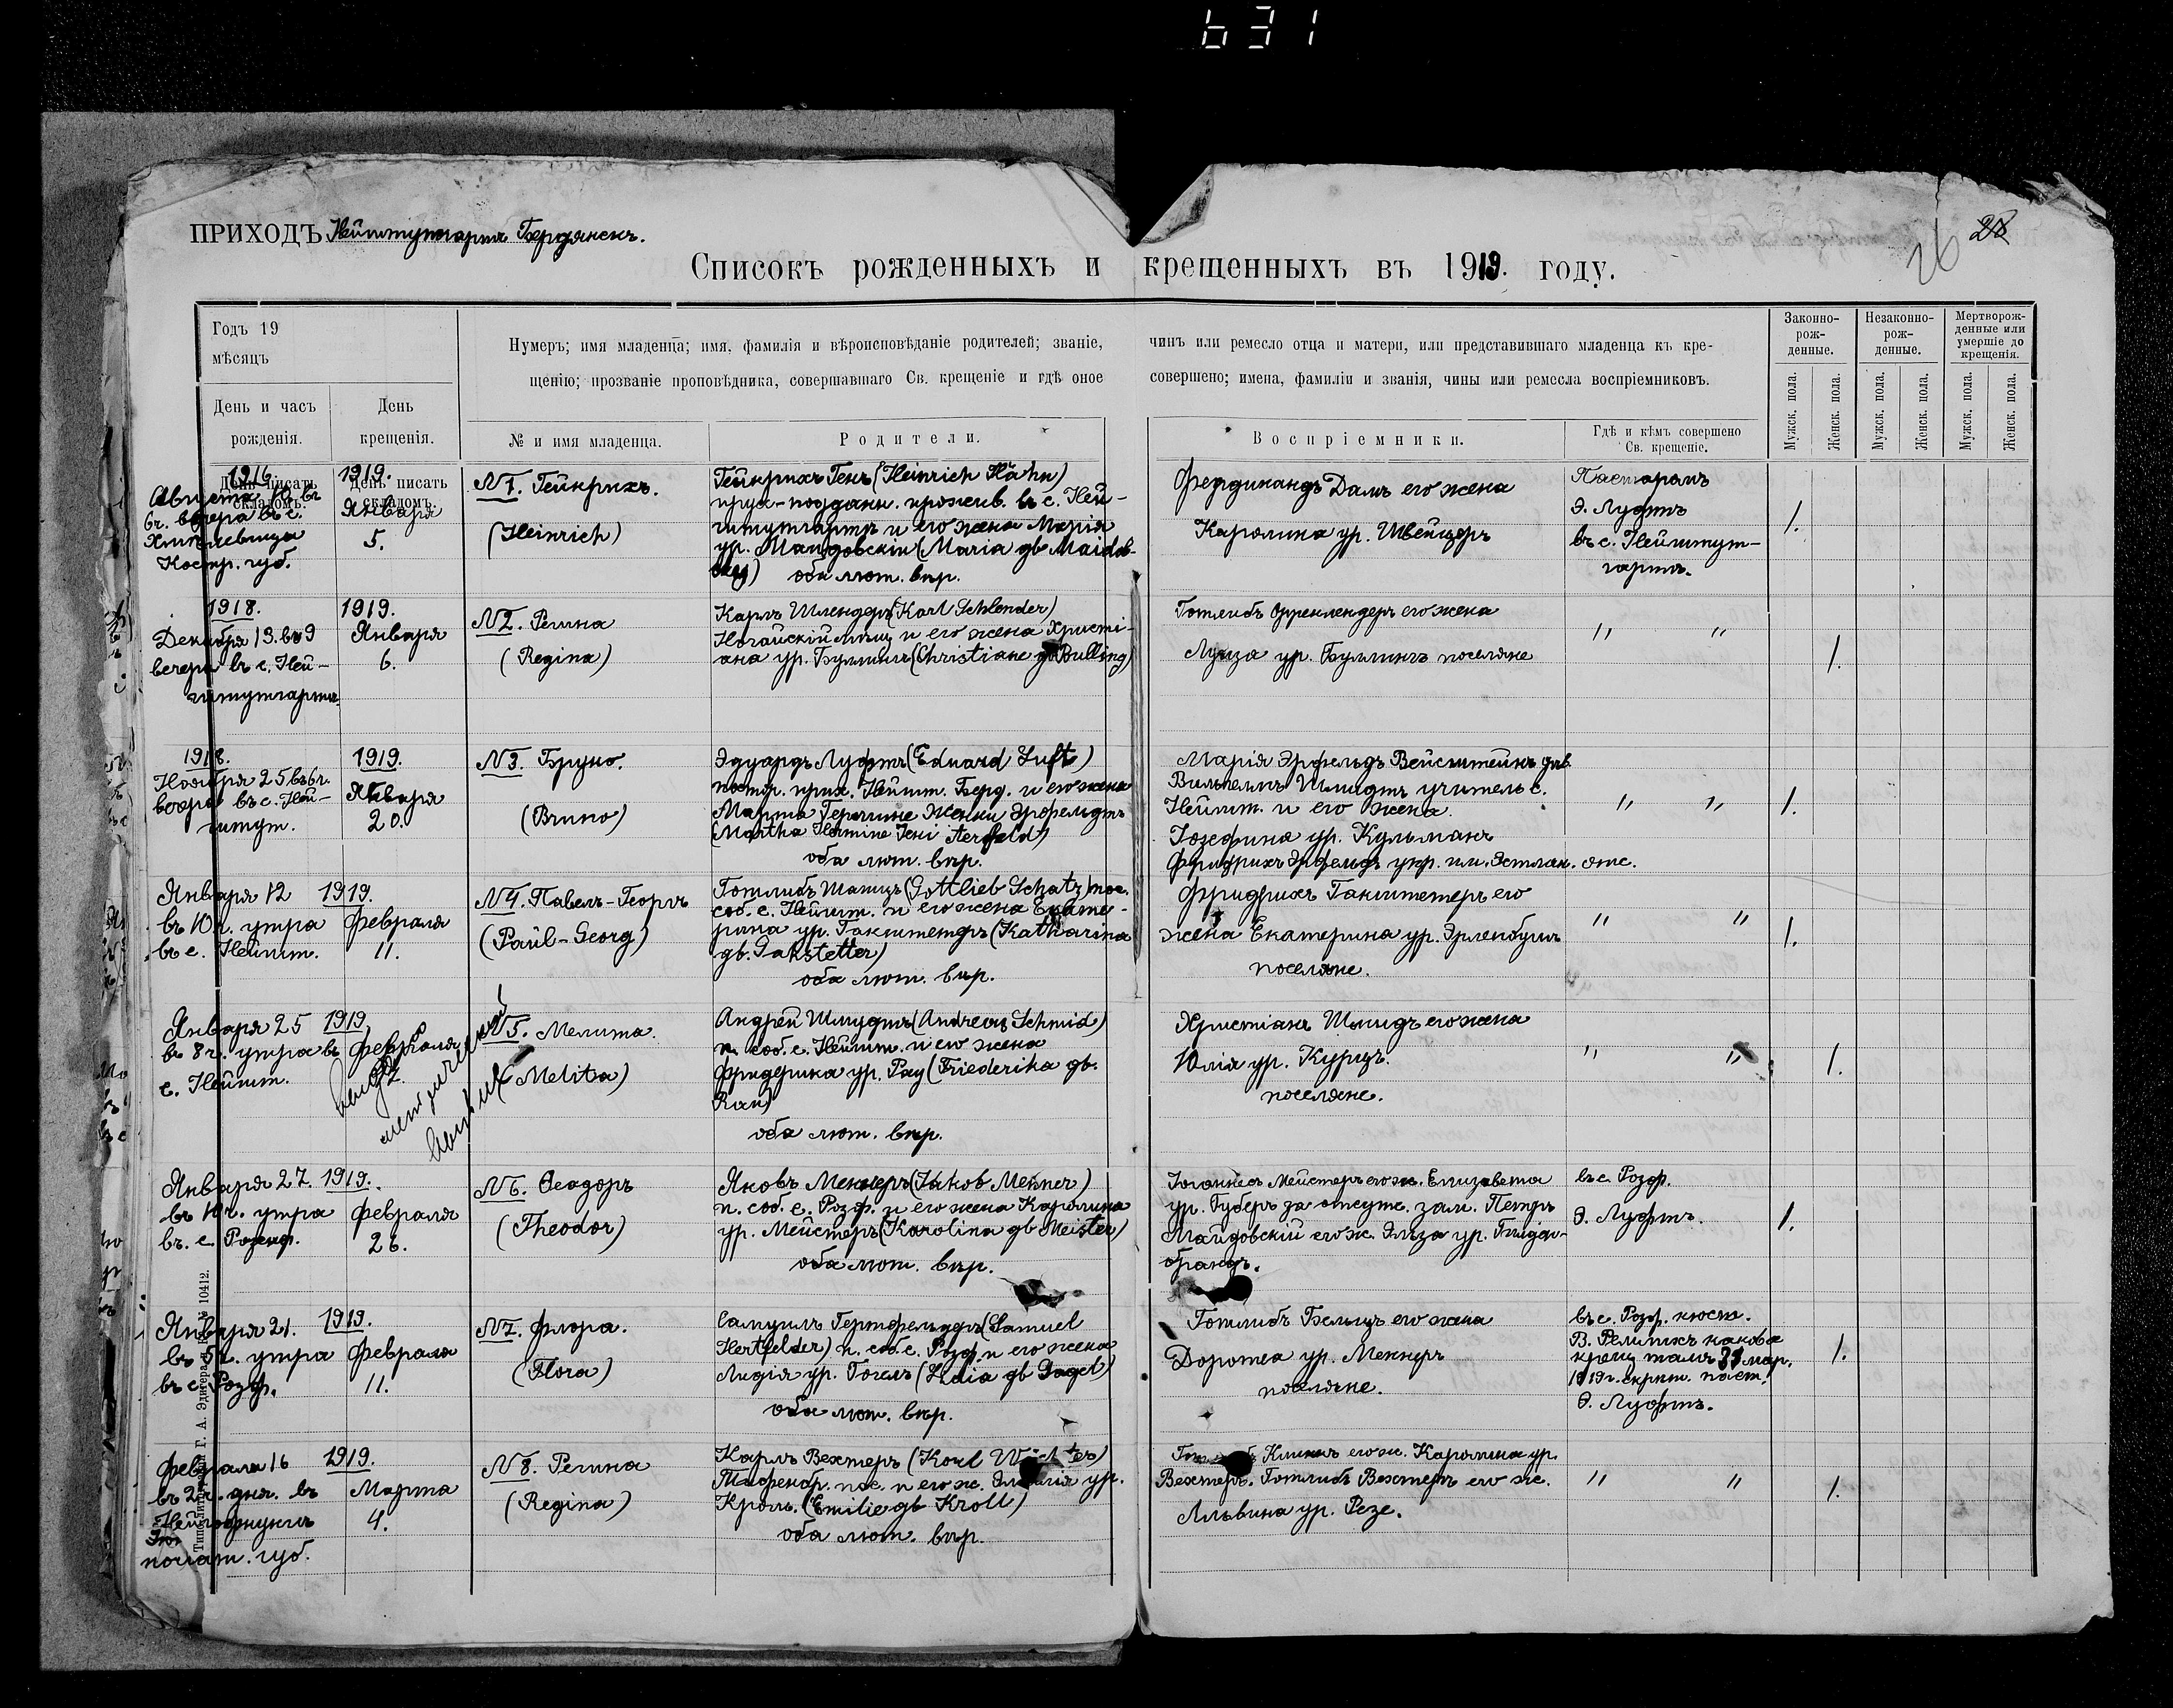 631
ПРИХОДЪ Нейштутгартъ Бердянскъ.
28
26
Списокъ рожденныхъ и крещенныхъ въ 1919. году.
Годъ 19
мѣсяцъ
День и часъ рожденія.
День крещенія.
Нумеръ; имя младенца; имя, фамилія и вѣроисповѣданіе родителей; званіе, чинъ или ремесло отца и матери, или представившаго младенца къ кре-
щенію; прозваніе проповѣдника, совершавшаго Св. крещеніе и гдѣ оное совершено; имена, фамиліи и званія, чины или ремесла воспріемниковъ.
№ и имя младенца.
Родители.
Воспріемники.
Гдѣ и кѣмъ совершено Св. крещеніе.
Законно-рож-денные.
Незаконно-рож-денные.
Мертворож-денные или умершіе до крещенія.
Мужск. пола.
Женск. пола.
Мужск. пола.
Женск. пола.
Мужск. пола.
Женск. пола.
День писать складомъ.
День писать складомъ.
1916.
Августа
вечера въ с.
Костр. губ.
1919.
Января
5.
N1. Гейнрихъ.
(Heinrich)
Гейнрихъ Генъ (Heinrich Hähn)
прус-поддан. прожив. въ с. Ней-
штутгартъ и его жена Марія
ур. Майдовскій (Maria дѣ Maidow-
sky) оба лют. вѣр.
Фердинандъ Далъ его жена
Каролина ур. Швейцеръ
Пасторомъ
Э. Луфтъ
въ с. Нейштут-
гартъ.
1.
1918.
Декабря 13. въ 9
вечера въ с. Ней-
штутгартъ.
1919.
Января
6.
N2. Регина
(Regina)
Карлъ Шлендеръ (Karl Schlender)
Ногайскій мѣщ. и его жена Христі-
ана ур. Буллингъ (Christiane дѣ Bulling)
Готлибъ Френлендеръ его жена
Луиза ур. Буллингъ поселяне
" "
1.
1918.
Ноября 25 въ 6 ч.
вечера въ с. Ней-
штут.
1919.
Января
20.
N3. Бруно.
(Bruno)
Эдуардъ Луфтъ (Eduard Luft)
пастор. прих. Нейшт. Берд. и его жена
Марта Гермине Женни Эрфельдтъ
(Martha Hermine Jeni Aerfeld)
оба лют. вѣр.
Марія Эрфельдъ Вейсштейнъ
Вильгельмъ Шмидтъ учитель с.
Нейшт. и его жена
Іозефина ур. Кульманъ
Фридрихъ Эрфельдъ
" "
1.
Января 12
въ 10 ч. утра
въ с. Нейшт.
1919.
Февраля
11.
N4. Павелъ-Георгъ
(Paul-Georg)
Готлибъ Шацъ (Gottlieb Schatz) пос.
соб. с. Нейшт. и его жена Екате-
рина ур. Гакштетеръ (Katharina
дѣ. Gakstetter)
оба лют. вѣр.
Фридрихъ Гакштетеръ его
жена Екатерина ур. Эрленбушъ
поселяне.
" "
1.
Января 25
въ 8 ч. утра въ
с. Нейшт.
1919
Февраля
N5. Мелита.
(Melitta)
Андрей Шмидтъ (Andreas Schmid)
п. соб. с. Нейшт. и его жена
Фридерика ур. Рау (Friederika дѣ.
Rau)
оба лют. вѣр.
Христіанъ Шмидъ его жена
Юлія ур. Курцъ.
поселяне.
" "
1.
Января 27.
въ 10 ч. утра
въ. с. Розенф.
1919.
Февраля
26.
N6. Ѳеодоръ
(Theodor)
Яковъ Мекнеръ (Jakob Mekner)
п. соб. с. Розф. и его жена Каролина
ур. Мейстеръ (Karolina дѣ Meister)
оба лют. вѣр.
Іоганнесъ Мейстеръ его ж. Елизавета
ур. Губеръ за отсутс. зам. Петръ
Майдовскій его ж. Эльза ур. Гильде-
брандъ.
въ с. Розф.
Э. Луфтъ.
1.
Января 21.
въ 5 ч. утра
въ с. Розф.
1919.
Февраля
11.
N7. Флора.
(Flora)
Самуилъ Гертфельдеръ (Samuel
Hertfelder) п. соб. с. Розф. и его жена
Лидія ур. Гогель (Lidia дѣ Gogel)
оба лют. вѣр.
Готлибъ Бельцъ его жена
Доротеа ур. Мекнеръ
поселяне.
въ с. Розф. кюст.
крещ.
1919 г. пост.
Э. Луфтъ.
1.
Февраля 16
въ 2 ч. дня. въ
губ.
1919.
Марта
4.
N8. Регина
(Regina)
Карлъ Вехтеръ (Karl
пос. и его ж. Эмилія ур.
Кроль. (Emilie дѣ Kroll)
оба лют. вѣр.
его ж. Каролина ур.
Вехтеръ. Готлибъ Вехтеръ его ж.
Альвина ур. Резе.
" "
1.
Типо-литографія Г. А. Эдигера и К° № 10412.